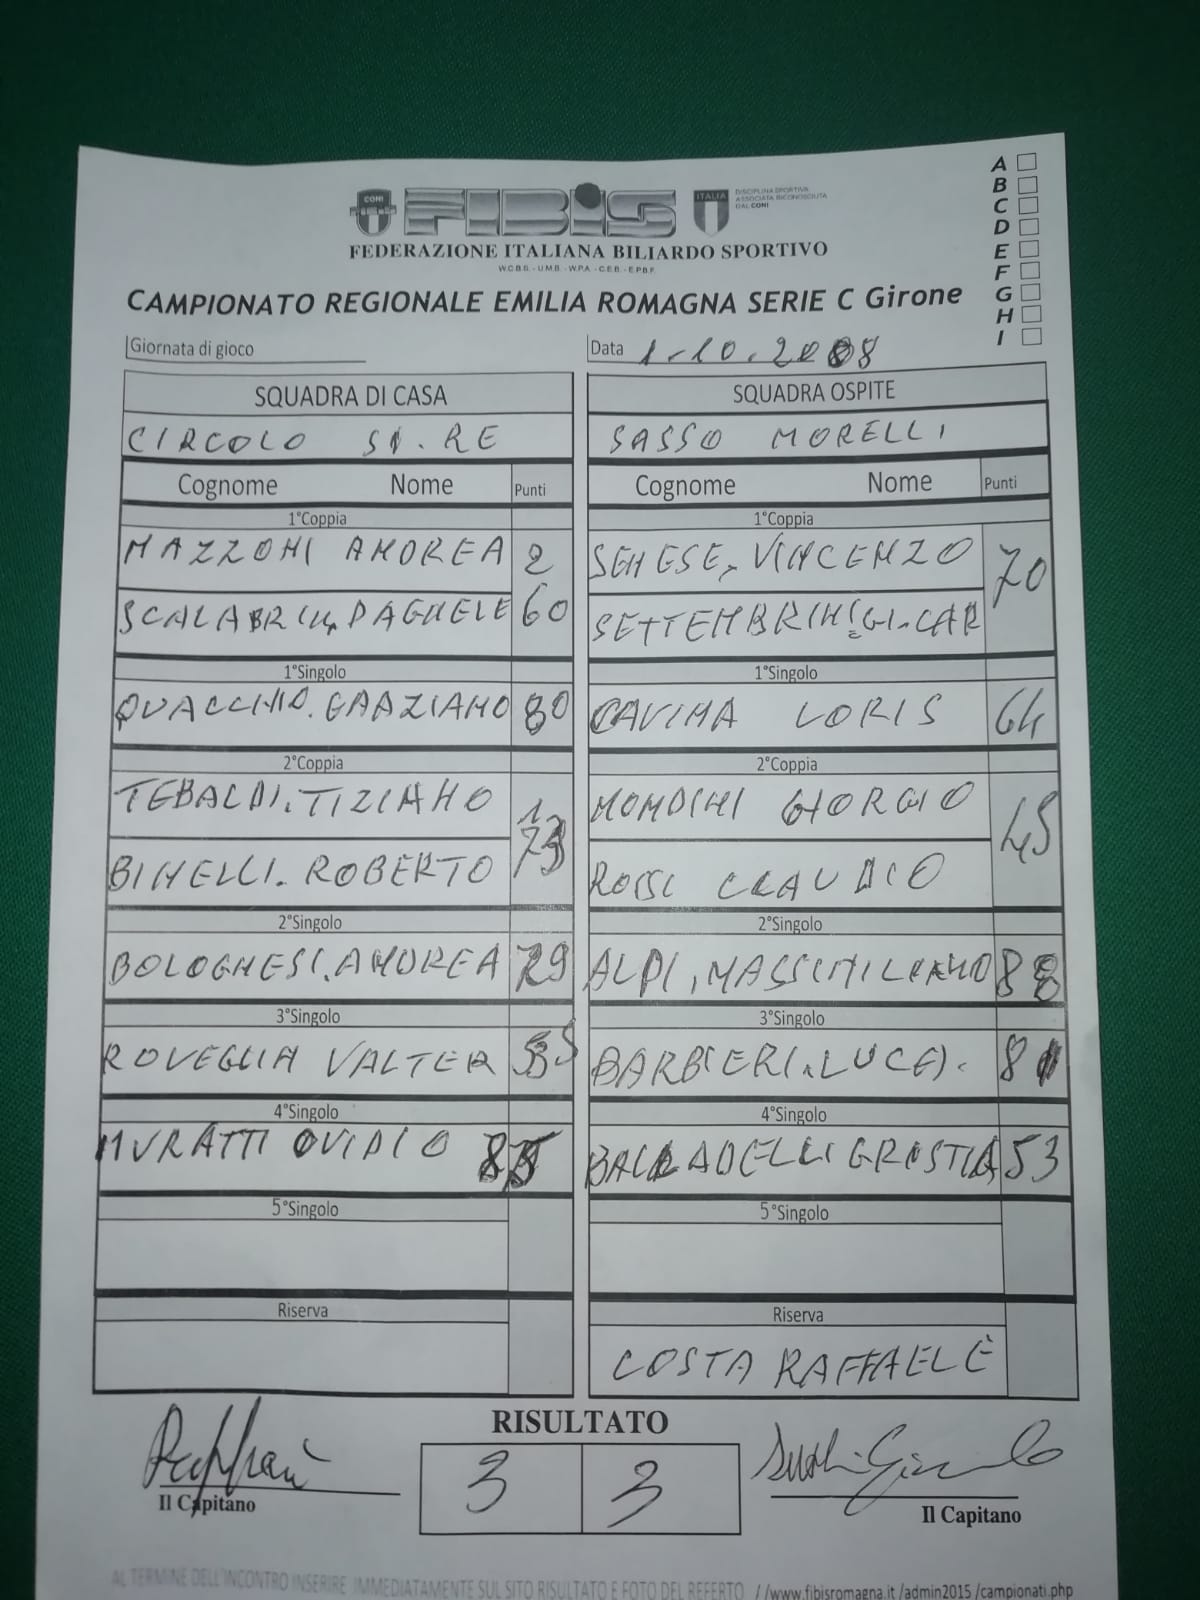 A
B
C
D
E
F
G
H
I
CONI
FIBiS
ITALIA
DISCIPLINA SPORTIVA
ASSOCIATA RICONOSCIUTA
DAL CONI
FEDERAZIONE ITALIANA BILIARDO SPORTIVO
W.C.B.S. - U.M.B. - W.P.A. - C.E.B. - E.P.B.F.
CAMPIONATO REGIONALE EMILIA ROMAGNA SERIE C Girone
Giornata di gioco Data 1.10.20
SQUADRA DI CASA SQUADRA OSPITE
CIRCOLO RE SASSO MORELLI
Cognome Nome Punti Cognome Nome Punti
1°Coppia 1°Coppia
MAZZONI ANDREA SENESE, VINCENZO 70
60 SETTEMBRINI GI.CAR
1°Singolo 1°Singolo
GRAZIANO 80 CAVINA LORIS 64
2°Coppia 2°Coppia
TEBALDI. TIZIANO MONDINI GIORGIO 45
BINELLI. ROBERTO 73 ROSSI CLAUDIO
2°Singolo 2°Singolo
BOLOGNESI. ANDREA 79 ALPI, MASSIMILIANO 88
3°Singolo 3°Singolo
ROVEGLIA VALTER BARBIERI. 
4°Singolo 4°Singolo
MURATTI OVIDIO 53
5°Singolo 5°Singolo
Riserva Riserva
COSTA RAFFAELE
RISULTATO
3 3
Il Capitano Il Capitano
AL TERMINE DELL'INCONTRO INSERIRE IMMEDIATAMENTE SUL SITO RISULTATO E FOTO DEL REFERTO //www.fibisromagna.it /admin2015 /campionati.php